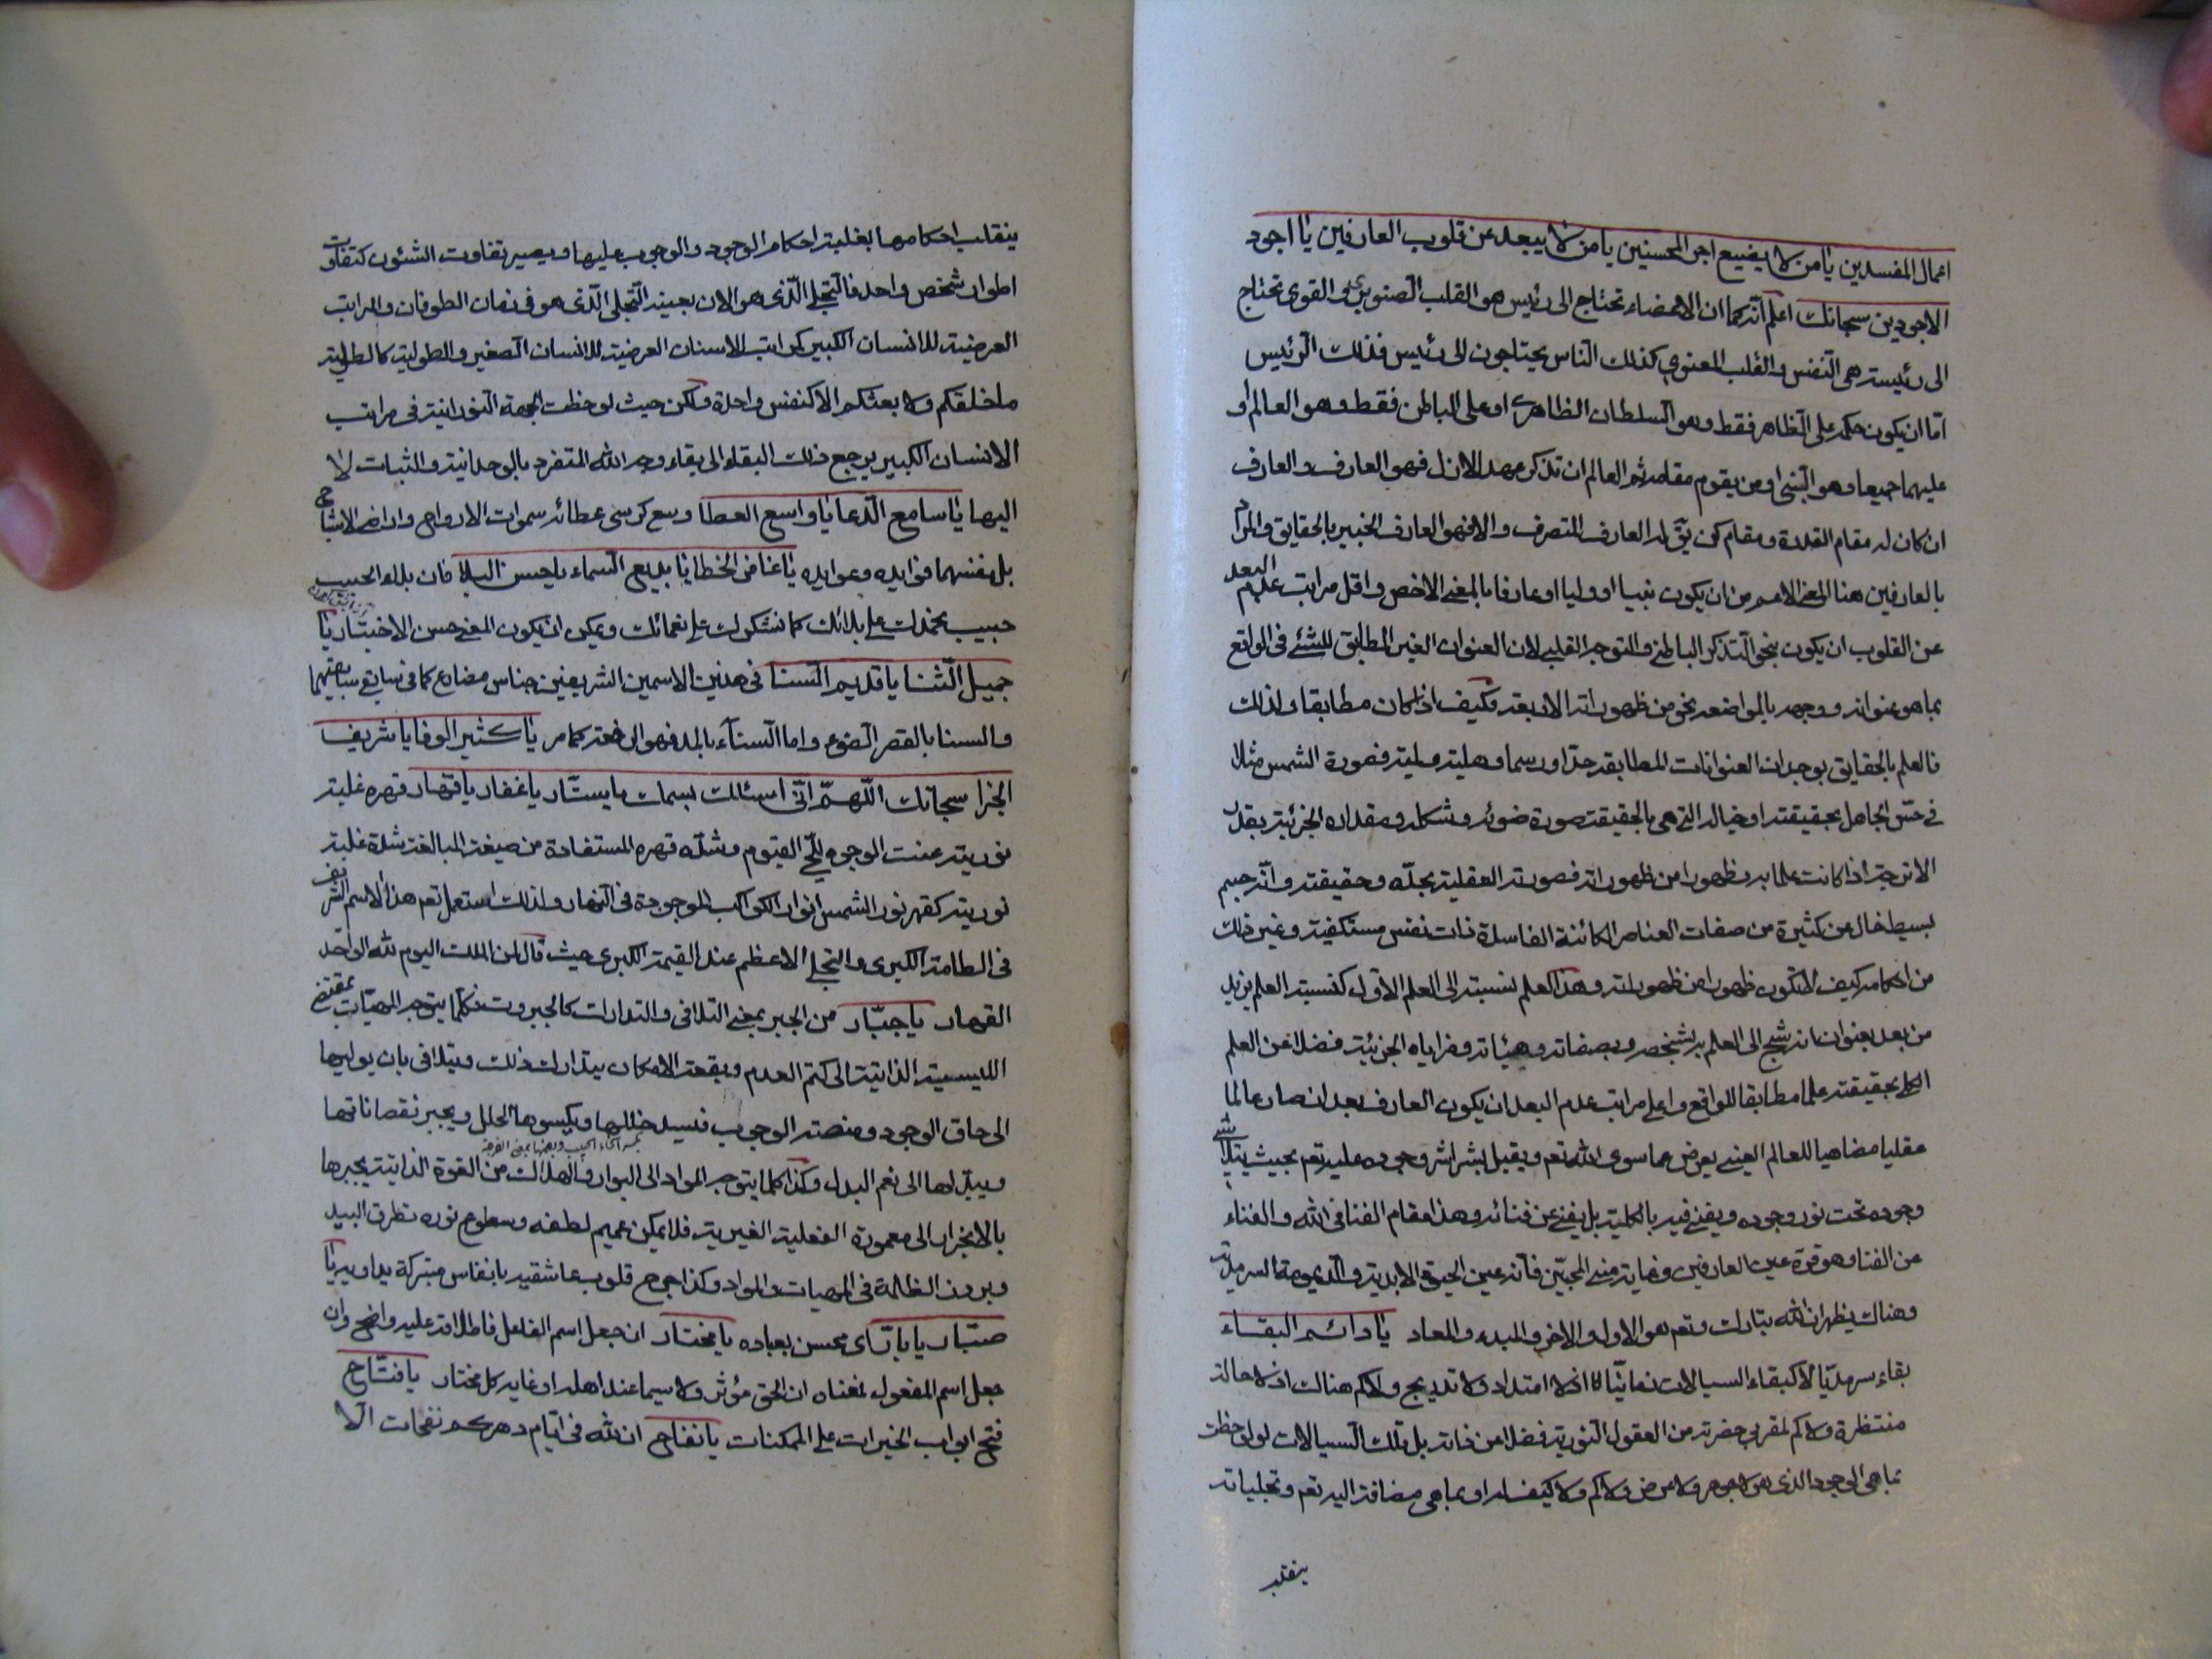 اعمال المفسدين يا من لا يضيع اجر المحسنين يا من لا يبعد عن قلوب العارفين يا اجود
الاجودين سبحانك اعلم انه كما ان الاعضاء تحتاج الى رئيس هو القلب الصنوبرى والقوى تحتاج
الى رئيسة هى النفس والقلب المعنوى كذلك الناس يحتاجون الى رئيس فذلك الرئيس
امّا ان يكون حكمه على الظاهر فقط وهو السلطان الظاهرى او على الباطن فقط وهو العالم او
عليهما جميعا وهو النبى او من يقوم مقامه ثم العالم ان تذكر عهد الازل فهو العارف والعارف
ان كان له مقام القدرة ومقام كن يق له العارف المتصرف والا فهو العارف الخبير بالحقايق والمراد
بالعارفين هنا المعنى الاعم من ان يكون نبيا او وليا او عارفا بالمعنى الاخص واقل مراتب عدم البعد
عن القلوب ان يكون بنحو التذكر الباطنى والتوجه القلبى لان العنوان الغير المطابق للشئ فى الواقع
بما هو عنوانه ووجهه بالمواضعة نحو من ظهوراته الاربعة وكيف اذا كان مطابقا ولذلك
فالعلم بالحقايق بوجدان العنوانات المطابقة حدّا ورسما وهلية ولمية فصورة الشمس مثلا
فى حسّ الجاهل بحقيقته او خياله التى هى بالحقيقة صورة ضوئه وشكله ومقداره الجزئية بقدر
الاترجة اذا كانت علما به وظهورا من ظهوراته فصورته العقلية بحدّه وحقيقته وانّه جسم
بسيط خال من كثيرة من صفات العناصر الكائنة الفاسدة ذات نفس مستكفية وغير ذلك
من احكامه كيف لا تكون ظهورا من ظهوراته وهذا العلم نسبته الى العلم الاوّل كنسبة العلم بزيد
من بعد بعنوان انه شبح الى العلم به بشخصه وبصفاته وهيئاته ومزاياه الجزئية فضلا عن العلم
الكلى بحقيقته علما مطابقا للواقع واعلى مراتب عدم البعد ان يكون العارف بعد ان صار عالما
عقليا مضاهيا للعالم العينى يعرض عما سوى الله تعم ويقبل بشراشر وجوده عليه تعم بحيث يتلاشى
وجوده تحت نور وجوده ويفنى فيه بالكلية بل يفنى عن فنائه وهذا مقام الفنا فى الله والفناء
عن الفنا وهو قرة عين العارفين ونهاية منى المحبيّن فانّه عين الحيوة الابدية والديمومة السرمدية
وهناك يظهر ان الله تبارك وتعم هو الاول والاخر والمبدء والمعاد يا دائم البقاء
بقاء سرمديّا لا كبقاء السيالات زمانيّا اذ لا امتداد ولا تدريج ولا كم هناك اذ لا حالة
منتظرة ولا كم لمقربى حضرته من العقول النورية فضلا عن ذاته بل تلك السيالات لو لوحظت
بما هى الوجود الذى هو لا جوهر ولا عرض ولا كم ولا كيف له او بما هى مضافة اليه تعم وتجلياته
ينقلب
ينقلب احكامها بغلبة احكام الوجود والوجوب عليها ويصير تفاوت الشئون كتفاوت
اطوار شخص واحد فالتجلى الّذى هو الان بعينه التجلى الّذى هو فى زمان الطوفان والمراتب
العرضية للانسان الكبير كمراتب الاسنان العرضية للانسان الصغير والطولية كالطولية
ما خلقكم ولا بعثكم الا كنفس واحدة ولكن حيث لوحظت الجهة النورانية فى مراتب
الانسان الكبير يرجع ذلك البقاء الى بقاء وجه الله المتفرد بالوحدانية والثبات لا
اليها يا سامع الدعا يا واسع العطا وسع كرسى عطائه سموات الارواح واراضى الاشباح
بل بفسهما فوائده وعوايده يا غافر الخطايا يا بديع السماء يا حسن البلا فان بلاء الحبيب
حبيب نحمدك على بلائك كما نشكرك على نعمائك ويمكن ان يكون المعنى حسن الاختبار يا
جميل الثنا يا قديم السنا فى هذين الاسمين الشريفين جناس مضارع كما فى سابع سابقيهما
والسنا بالقصر الضوء واما السناء بالمد فهو الرفعة كما مر يا كثير الوفا يا شريف
الجزا سبحانك اللّهمّ انّى اسئلك بسمك يا ستّار يا غفار يا قهّار قهره غلبة
نوريته عنت الوجوه للحىّ القيوم وشدّة قهره المستفادة من صيغة المبالغة شدة غلبة
نوريته كقهر نور الشمس انوار الكواكب الموجودة فى النهار ولذلك استعمل تعم هذا الاسم الشريف
فى الطامة الكبرى والتجلى الاعظم عند القيمة الكبرى حيث قال لمن الملك اليوم لله الواحد
القهار يا جبّار من الجبر بمعنى التلافى والتدارك كالجبروت فكلما يتوجه المهيّات بمقتضى
الليسية الذاتية الى كتم العدم وبقعة الامكان يتدارك ذلك ويتلافى بان يوليها
الى حاق الوجود ومنصة الوجوب فيسد خللها ويكسوها الحلل ويجبر نقصاناتها
ويبدّلها الى نعم البدل وكذا كلما يتوجه المواد الى البوار والهلاك من القوة الذاتية يجبرها
بالانجرار الى معمورة الفعلية الغيرية فلا يمكن عميم لطفه وسطوع نوره تطرق البيد
وبروز الظلمة فى المهيات والمواد وكذا جروح قلوب عاشقيه بانفاس متبركة يداويه يا
صبّار يا بارّ اى محسن بعباده يا مختار ان جعل اسم الفاعل فاطلاقه عليه واضح وان
جعل اسم المفعول فمعناه ان الحق مؤثر ولا سيما عند اهله او غاية كل مختار يا فتّاح
فتح ابواب الخيرات على الممكنات يا نفاح ان لله فى ايّام دهركم نفحات الا